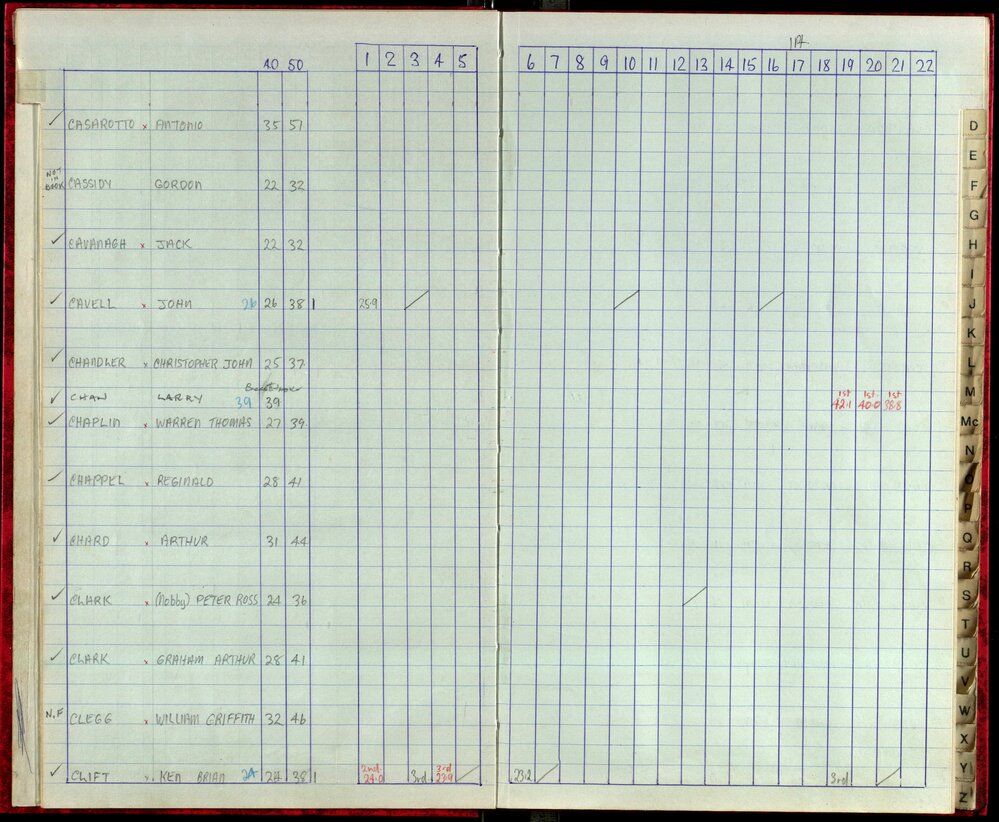 1Pt
40 50 1 2 3 4 5 6 7 8 9 10 11 12 13 14 15 16 17 18 19 20 21 22
✓ CASAROTTO x ANTONIO 35 51
NOT IN BOOK CASSIDY GORDON 22 32
✓ CAVANAGH x JACK 22 32
✓ CAVELL x JOHN 26 26 38 1 25.9
✓ CHANDLER x CHRISTOPHER JOHN 25 37
✓ CHAN LARRY 39 39 1st 42.1 1st 40.0 1st 38.8
✓ CHAPLIN x WARREN THOMAS 27 39
✓ CHAPPEL x REGINALD 28 41
✓ CHARD x ARTHUR 31 44
✓ CLARK x (Nobby) PETER ROSS 24 36
✓ CLARK x GRAHAM ARTHUR 28 41
N.F CLEGG x WILLIAM GRIFFITH 32 46
✓ CLIFT x KEN BRIAN 24 24 38 1 2nd 24.0 3rd 3rd 23.9 23.2 3rd
D
E
F
G
H
I
J
K
L
M
Mc
N
O
P
Q
R
S
T
U
V
W
X
Y
Z